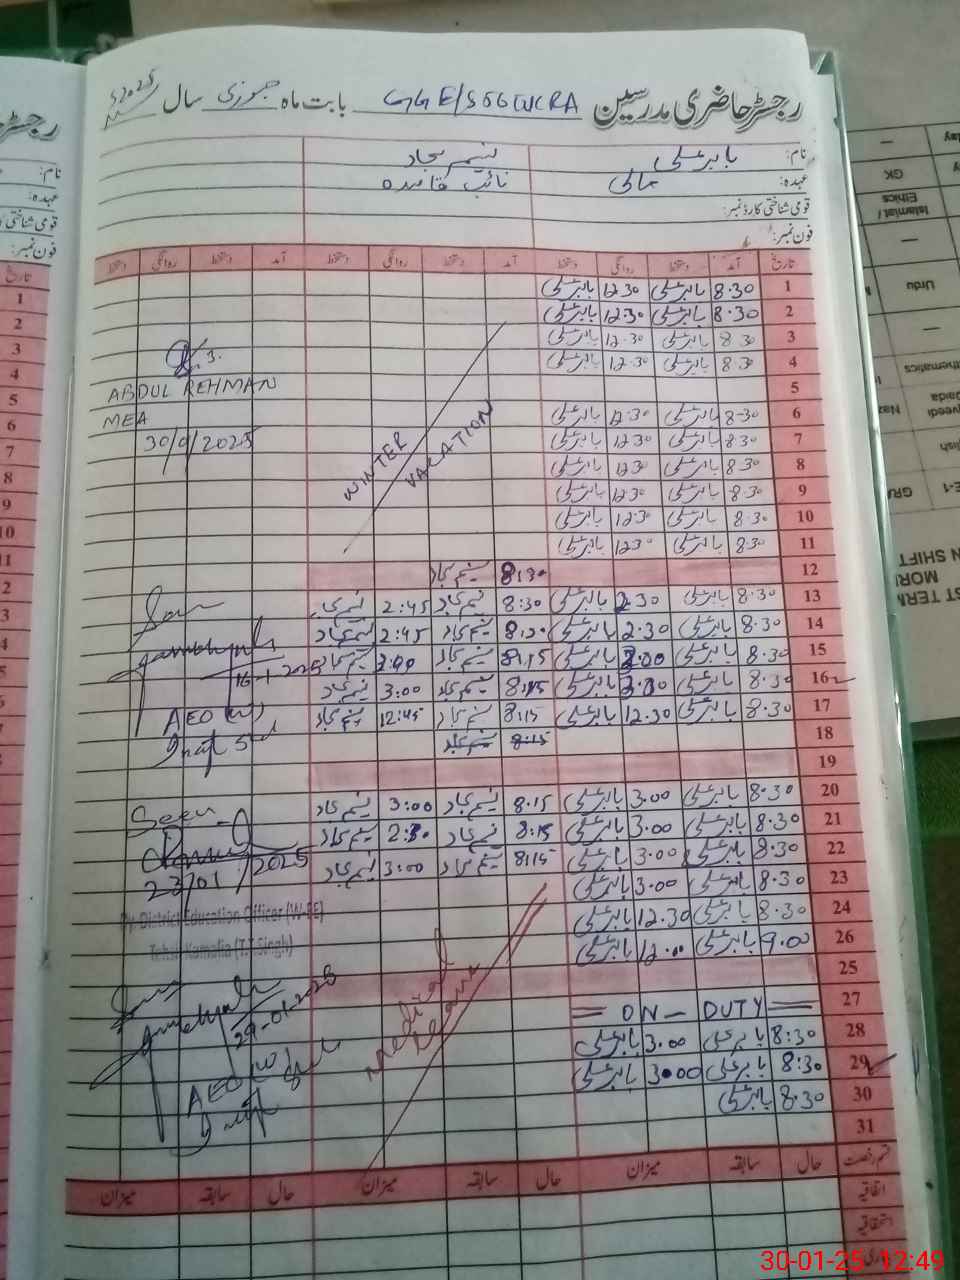 رجسٹر حاضری مدرسین GGE/S 556 GUCRA بابت ماہ جنوری سال 2025
نام: بابر علی نسیم سجاد
عہدہ: مالی نائب قاصدہ
قومی شناختی کارڈ نمبر:
فون نمبر:
تاریخ آمد دستخط روانگی دستخط آمد دستخط روانگی دستخط آمد دستخط روانگی دستخط
1 8.30 بابر علی 12.30 بابر علی
2 8.30 بابر علی 12.30 بابر علی
3 8.30 بابر علی 12.30 بابر علی
4 8.30 بابر علی 12.30 بابر علی
5
6 8.30 بابر علی 12.30 بابر علی
7 8.30 بابر علی 12.30 بابر علی
8 8.30 بابر علی 12.30 بابر علی
9 8.30 بابر علی 12.30 بابر علی
10 8.30 بابر علی 12.30 بابر علی
11 8.30 بابر علی 12.30 بابر علی
WINTER
VACATION
ABDUL REHMAN
MEA
12 8:30 نسیم سجاد
13 8.30 بابر علی 2.30 بابر علی 8:30 نسیم سجاد 2:45 نسیم سجاد
14 8.30 بابر علی 2.30 بابر علی 8:30 نسیم سجاد 2:45 نسیم سجاد
15 8.30 بابر علی 3.00 بابر علی 8:15 نسیم سجاد 3:00 نسیم سجاد
16 8.30 بابر علی بابر علی 8:15 نسیم سجاد 3:00 نسیم سجاد
17 8.30 بابر علی 12.30 بابر علی 8:15 نسیم سجاد 12:45 نسیم سجاد
18 8:15 نسیم سجاد
19
16-1-2025
AEO (W)
20 8.30 بابر علی 3.00 بابر علی 8.15 نسیم سجاد 3:00 نسیم سجاد
21 8.30 بابر علی 3.00 بابر علی 8:15 نسیم سجاد 2:30 نسیم سجاد
22 8.30 بابر علی 3.00 بابر علی 8:15 نسیم سجاد 3:00 نسیم سجاد
23 8.30 بابر علی 3.00 بابر علی
24 8.30 بابر علی 12.30 بابر علی
26 9.00 بابر علی 12.00 بابر علی
25
27 = ON - DUTY =
28 8:30 بابر علی 3.00 بابر علی
29 8:30 بابر علی 3.00 بابر علی
30 8.30 بابر علی
31
Medical
Leave
Seen
23/01/2025
Dy. District Education Officer (W-EE)
Tehsil Kamalia (T.T.Singh)
29-01-2025
AEO (W)
قسم رخصت حال سابقہ میزان حال سابقہ میزان حال سابقہ میزان
اتفاقیہ
استحقاقیہ
رجسٹر
نام:
عہدہ:
قومی شناختی کارڈ
فون نمبر:
تاریخ
1
2
3
4
5
6
7
8
9
10
11
GK
Islamiat /
Ethics
Urdu
30-01-25 12:49